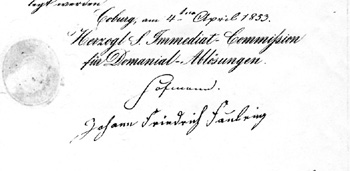 legt werden
Coburg, am 4ten April 1853.
Herzogl. S. Immediat-Commission
für Domanial-Ablösungen.
Hofmann.
Johann Friedrich